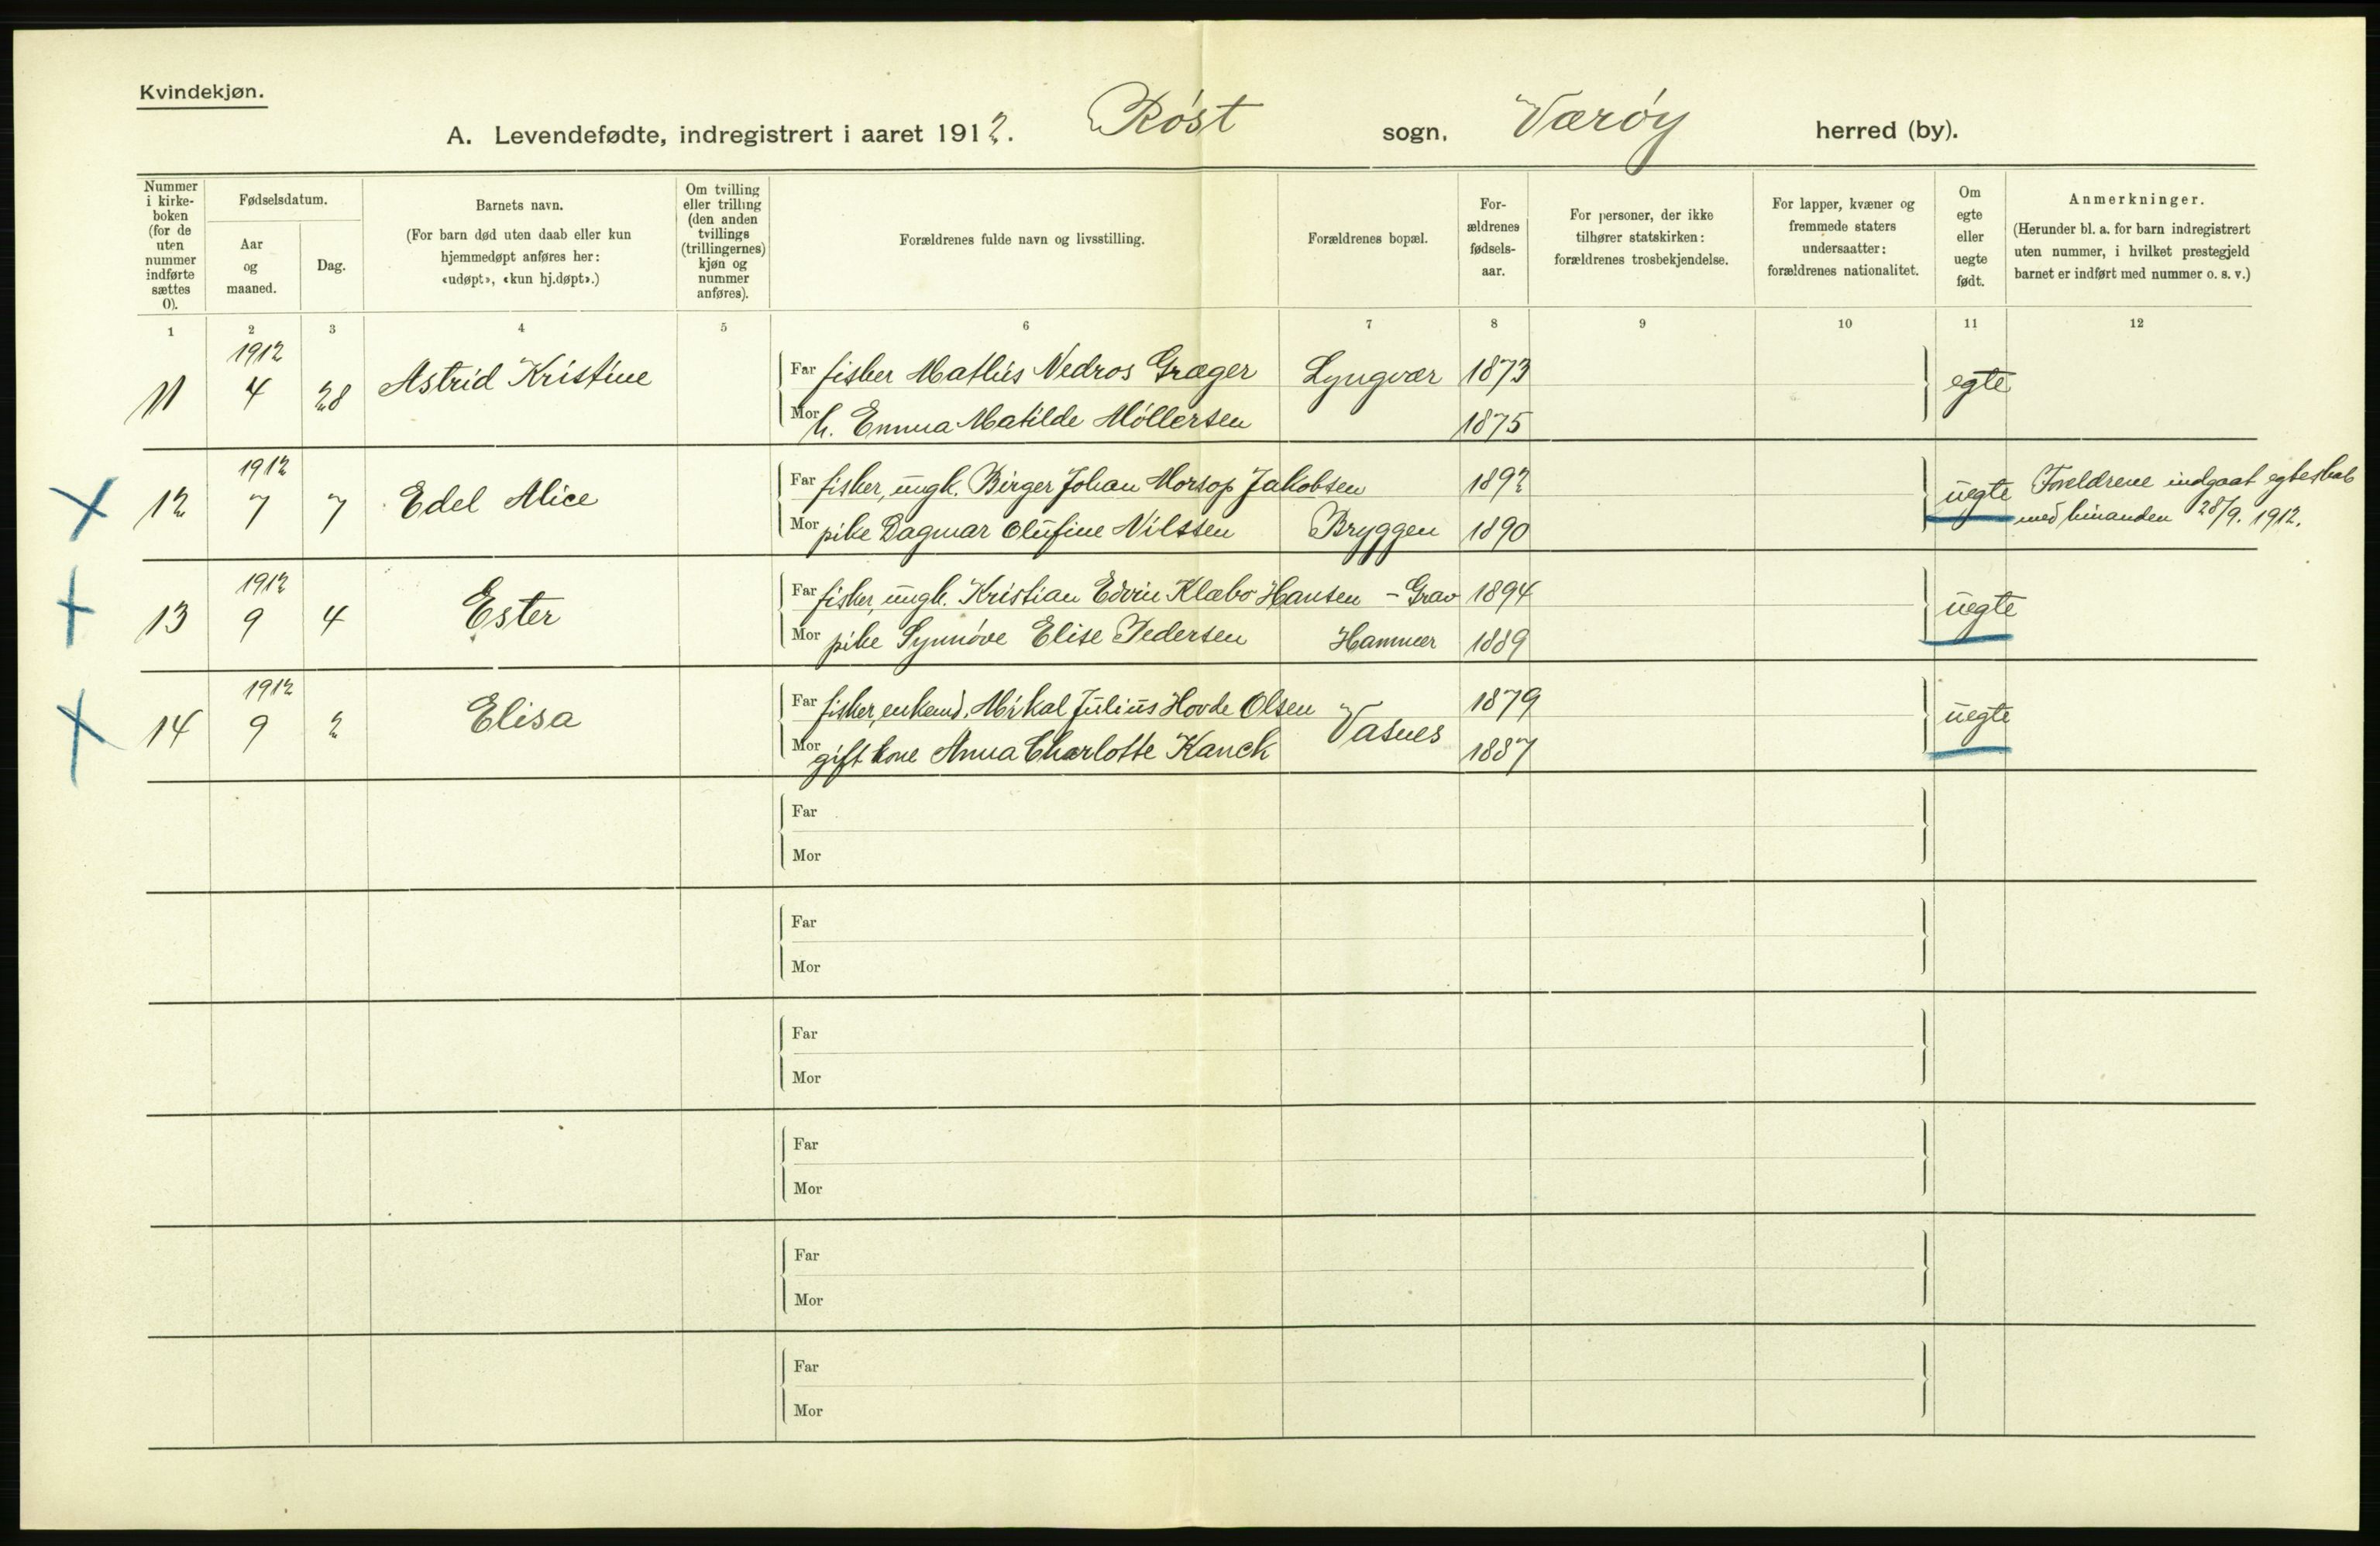 Kvindekjøn.
A. Levendefødte, indregistrert i aaret 1912. Røst sogn, Værøy herred (by).
Nummer i kirke-boken (for de uten nummer indførte sættes 0).
Fødselsdatum.
Aar og maaned.
Dag.
Barnets navn.
(For barn død uten daab eller kun hjemmedøpt anføres her: «udøpt», «kun hj.døpt».)
Om tvilling eller trilling (den anden tvillings (trillingernes) kjøn og nummer anføres).
Forældrenes fulde navn og livsstilling.
Forældrenes bopæl.
For-ældrenes fødsels-aar.
For personer, der ikke tilhører statskirken: forældrenes trosbekjendelse.
For lapper, kvæner og fremmede staters undersaatter: forældrenes nationalitet.
Om egte eller uegte født.
Anmerkninger.
(Herunder bl. a. for barn indregistrert uten nummer, i hvilket prestegjeld barnet er indført med nummer o. s. v.)
1 2 3 4 5 6 7 8 9 10 11 12
11 1912 4 28 Astrid Kristine
Far fisker Mathis Nedros Græger Lyngvær 1873 egte
Mor h. Emma Matilde Møllersen 1875
12 1912 7 7 Edel Alice
Far fisker, ungk. Birger Johan Morsop Jakobsen 1892 uegte Foreldrene indgaat egteskab
Mor pike Dagmar Olufine Nilssen Bryggen 1890 med hinanden 28/9. 1912.
13 1912 9 4 Ester
Far fisher, ungk. Kristian Edvin Klæbo Hansen - Grav 1894 uegte
Mor pike Synnøve Elise Pedersen Hammer 1889
14 1912 9 2 Elisa
Far fisker, enkemd. Mikal Julius Hovde Olsen Vasnes 1879 uegte
Mor gift kone Anna Charlotte Kanck 1887
Far
Mor
Far
Mor
Far
Mor
Far
Mor
Far
Mor
Far
Mor